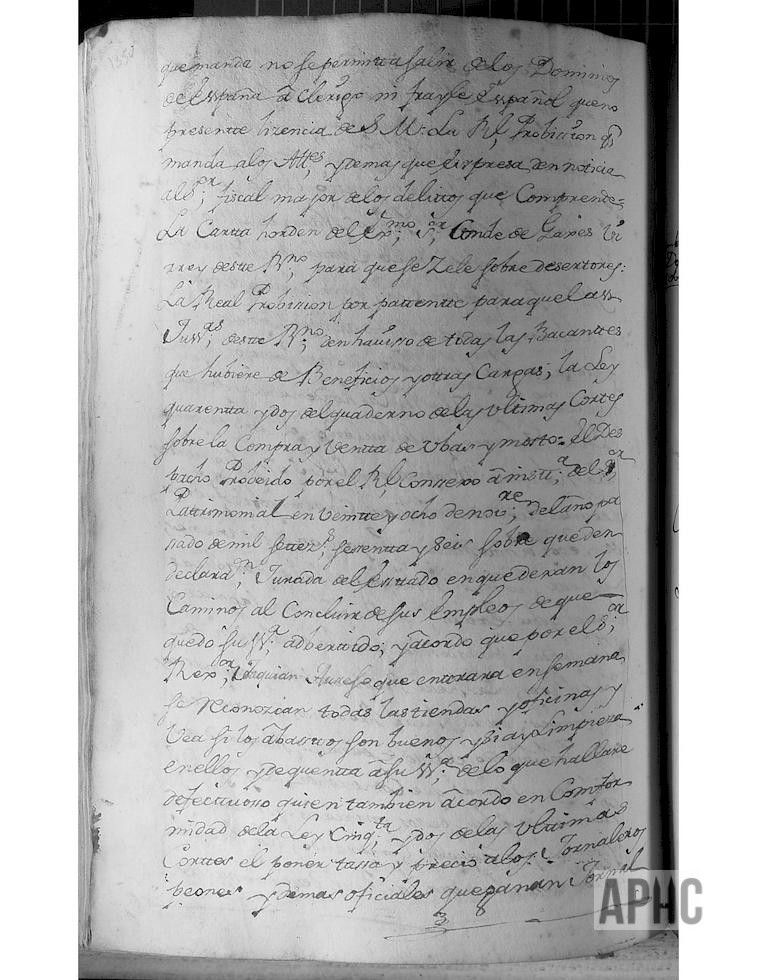 que manda no se permitta salir de los Dominios
de España â Clerigo ni frayle Español que no
presentte lizencia de S. M. La Rl. Probission q.
manda a los Attes. y demas que expresa den noticia
al Sor. fiscal maior de los delittos que Comprende=
La Cartta horden del Exmo. Sr. Conde de Gaxes Vi
rrey deste Rno. para que se Zele sobre desertores:
La Real Probision por pattentte para que las
Juss. deste Rno. den havisso de todas las Bacanttes
que hubiere de Beneficios y ottras Cargas; la Ley
quarentta y dos del quaderno de las ultimas Cortes
sobre la Compra y Ventta de Ubas y mosto= El Des
pacho Probeido por el Rl. Consexo â instta. del Sr.
Pattrimonial en veintte y ocho de novre. del año pa
sado de mil settezs. sesentta y seis sobre que den
declaran. Jurada del Esttado en que dexan los
Caminos al Concluir de sus Empleos de que
quedo su Sa. adbertido; y acordo que por el Sor.
Rexor. que enttrara en semana
se reconozcan todas las tiendas y oficinas y
Vea si los abasttos son buenos y si ay Limpieza
en ellos y de quentta â su Sa. de lo que hallare
defectuosso quien tambien acordo en Confor
midad de la Ley Cinqta. y dos de las Ultimas
Corttes el poner tassa y precio a los Jornaleros
peones y demas oficiales que ganan Jornal
APHC